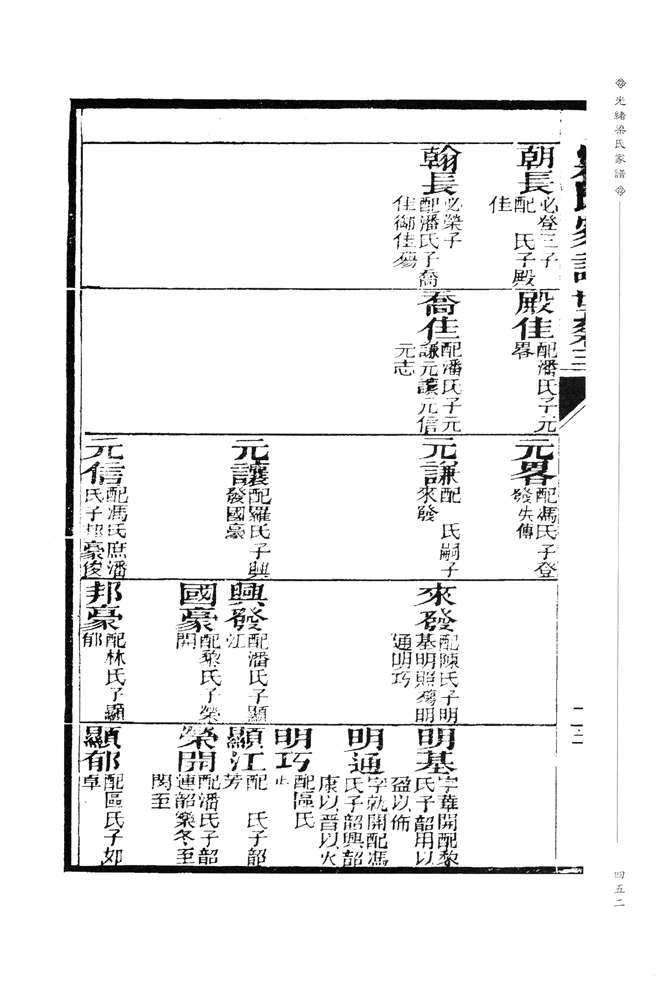 光緒梁氏家譜
四五二
梁氏家譜世系三
朝長
必登三子
配 氏子殿
佳
翰長
必榮子
配潘氏子喬
佳
殿佳
配潘氏子元
畧
喬佳
配潘氏子元
謙元讓元信
元志
元畧
配馮氏子登
發失傳
元謙
配 氏嗣子
來發
元讓
配羅氏子興
發國豪
元信
配馮氏庶潘
氏子邦豪俊
來發
配陳氏子明
基明照殤明
通明巧
興發
配潘氏子顯
江
國豪
配黎氏子榮
開
邦豪
配林氏子顯
郁
明基
字華開配黎
氏子韶用以
盈以佈
明通
字就開配馮
氏子韶興韶
康以晋以火
明巧
配區氏
止
顯江
配 氏子韶
芳
榮開
配潘氏子韶
連韶樂冬至
閏至
顯郁
配區氏子如
卓